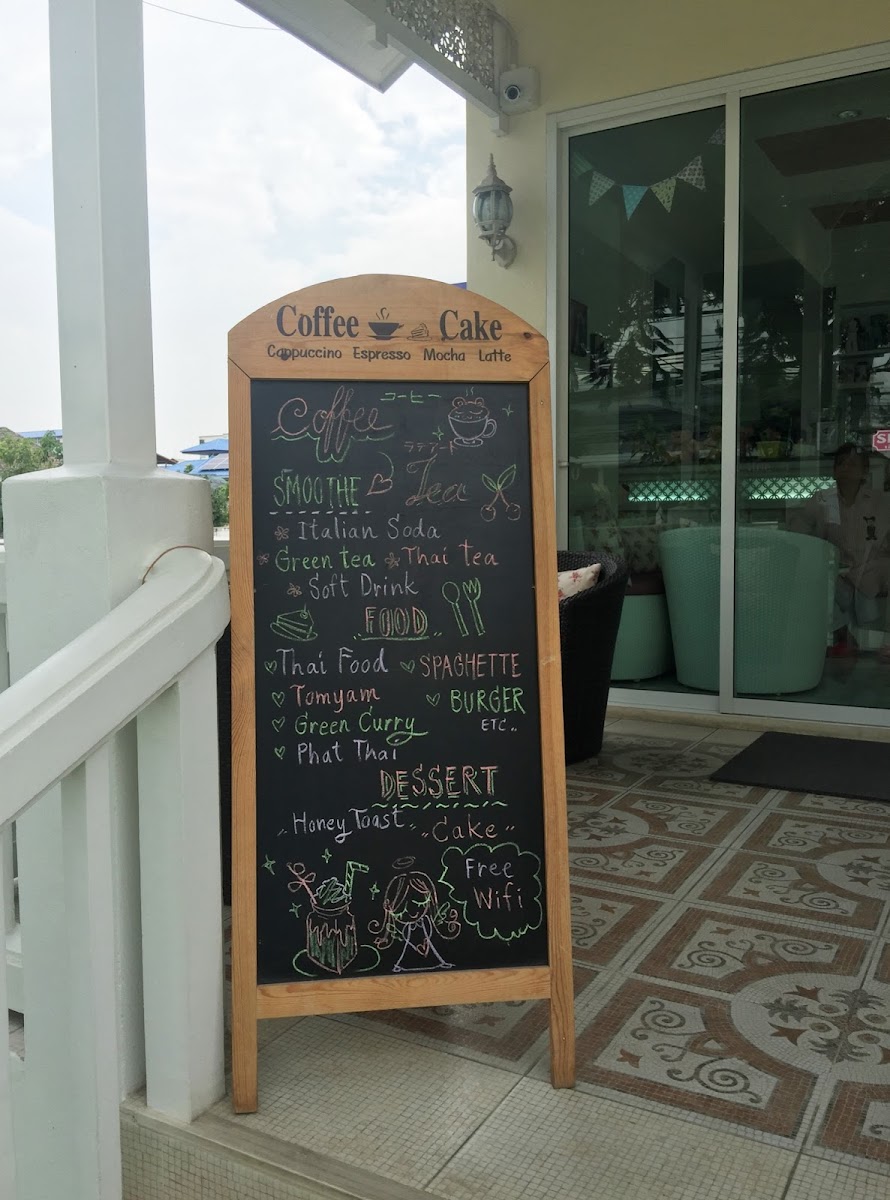 Coffee Cake
Cappuccino Espresso Mocha Latte
Coffee
コーヒー
ラテアート
SMOOTHE
Tea
Italian Soda
Green tea Thai tea
Soft Drink
FOOD
Thai Food SPAGHETTE
Tomyam BURGER
Green Curry ETC..
Phat Thai
DESSERT
Honey Toast "Cake"
Free
Wifi